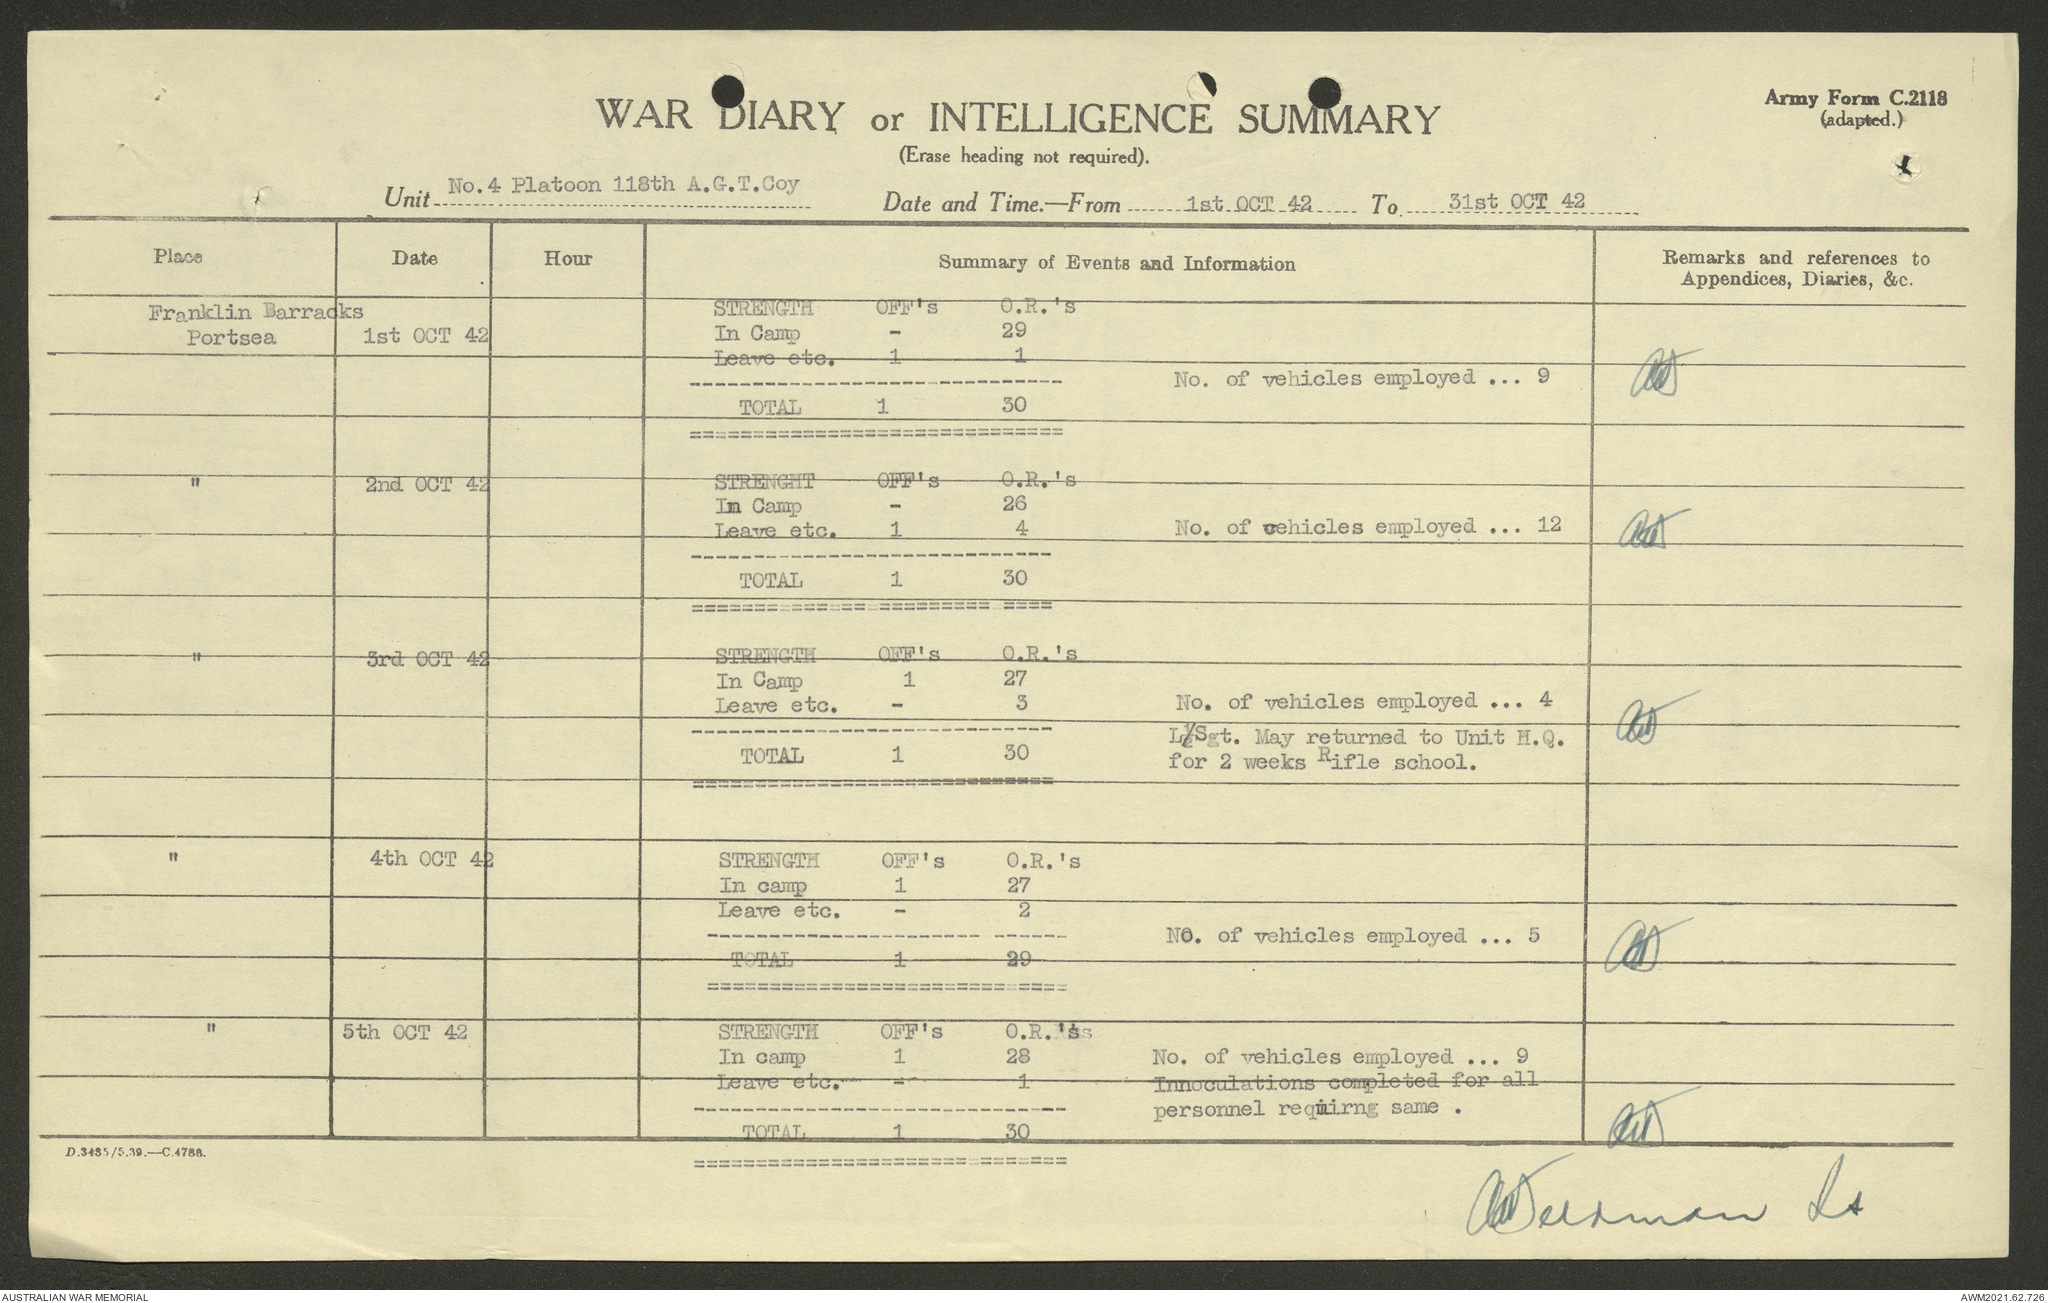 WAR DIARY or INTELLIGENCE SUMMARY
Army Form C.2118
(adapted.)
(Erase heading not required).
Unit No.4 Platoon 118th A.G.T.Coy Date and Time.—From 1st OCT 42 To 31st OCT 42
Place Date Hour Summary of Events and Information Remarks and references to
Appendices, Diaries, &c.
Franklin Barracks STRENGTH OFF's O.R.'s
Portsea 1st OCT 42 In Camp - 29
Leave etc. 1 1
No. of vehicles employed ... 9
TOTAL 1 30
" 2nd OCT 42 STRENGHT OFF's O.R.'s
In Camp - 26
Leave etc. 1 4 No. of cehicles employed ... 12
TOTAL 1 30
" 3rd OCT 42 STRENGTH OFF's O.R.'s
In Camp 1 27
Leave etc. - 3 No. of vehicles employed ... 4
L/Sgt. May returned to Unit H.Q.
TOTAL 1 30 for 2 weeks Rifle school.
" 4th OCT 42 STRENGTH OFF's O.R.'s
In camp 1 27
Leave etc. - 2
No. of vehicles employed ... 5
TOTAL 1 29
" 5th OCT 42 STRENGTH OFF's O.R.'s
In camp 1 28 No. of vehicles employed ... 9
Leave etc. - 1 Innoculations completed for all
personnel requirng same .
TOTAL 1 30
D.3485/5.39.—C.4788.
AUSTRALIAN WAR MEMORIAL
AWM2021.62.726